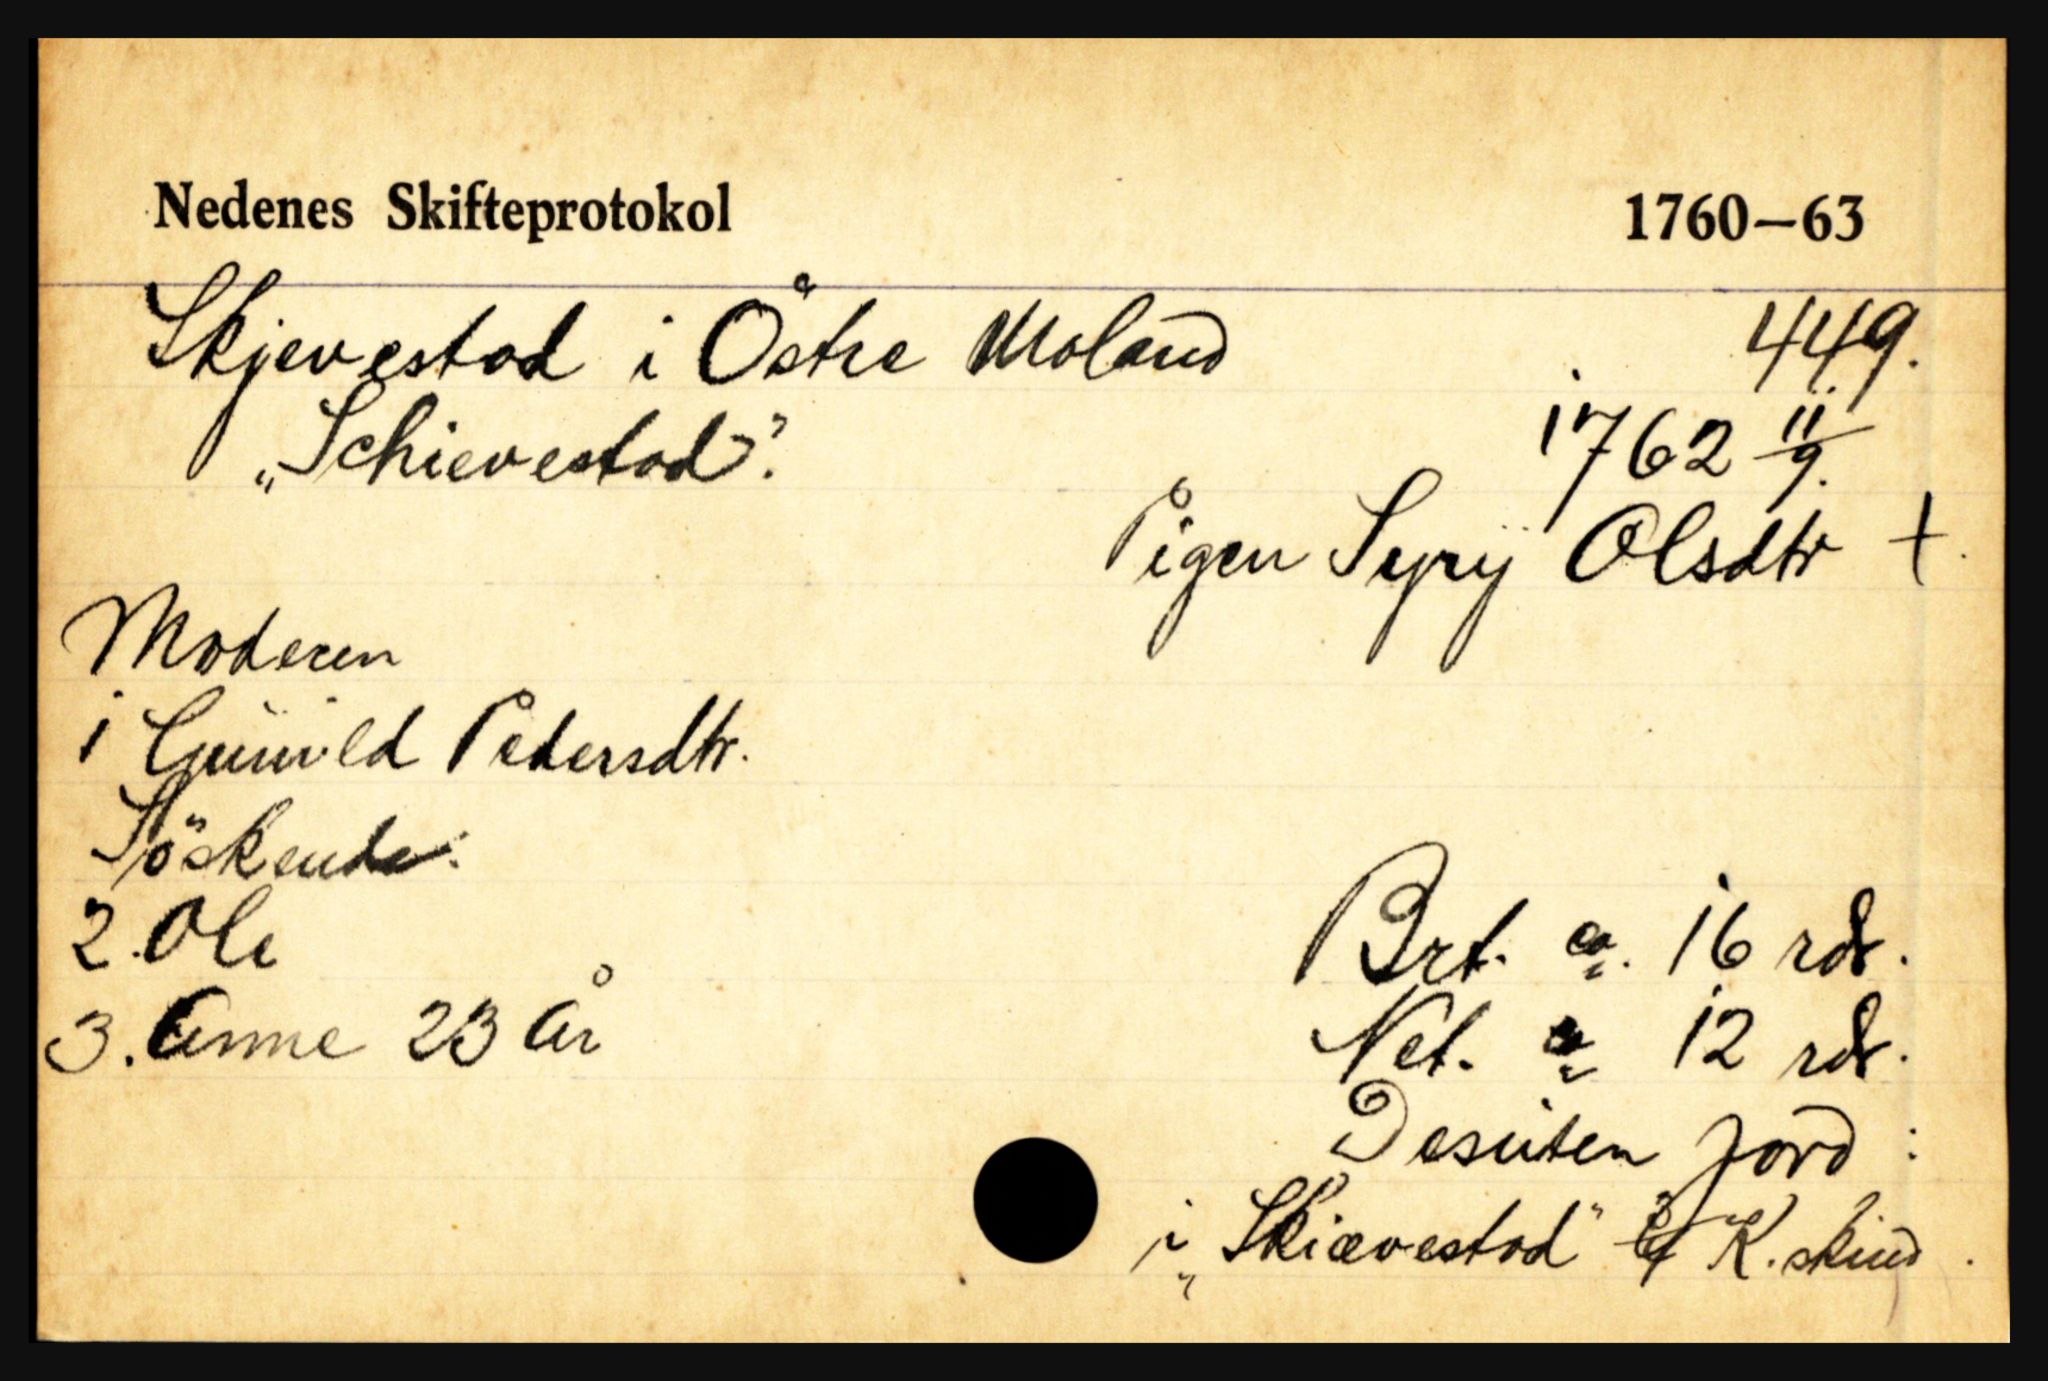 Nedenes Skifteprotokol 1760—63
Skjevestad i Östre Moland 449.
„Schievestad”. 1762 11/9.
Pigen Syrij Olsdtr +.
Moderen
1 Gunvld Pedersdtr.
Söskende.
2. Ole
3. Anne 23 År
Brt. ca. 16 rdr.
Net. ca 12 rdr.
Desuten jord :
i „Skiævestad” K. skind.